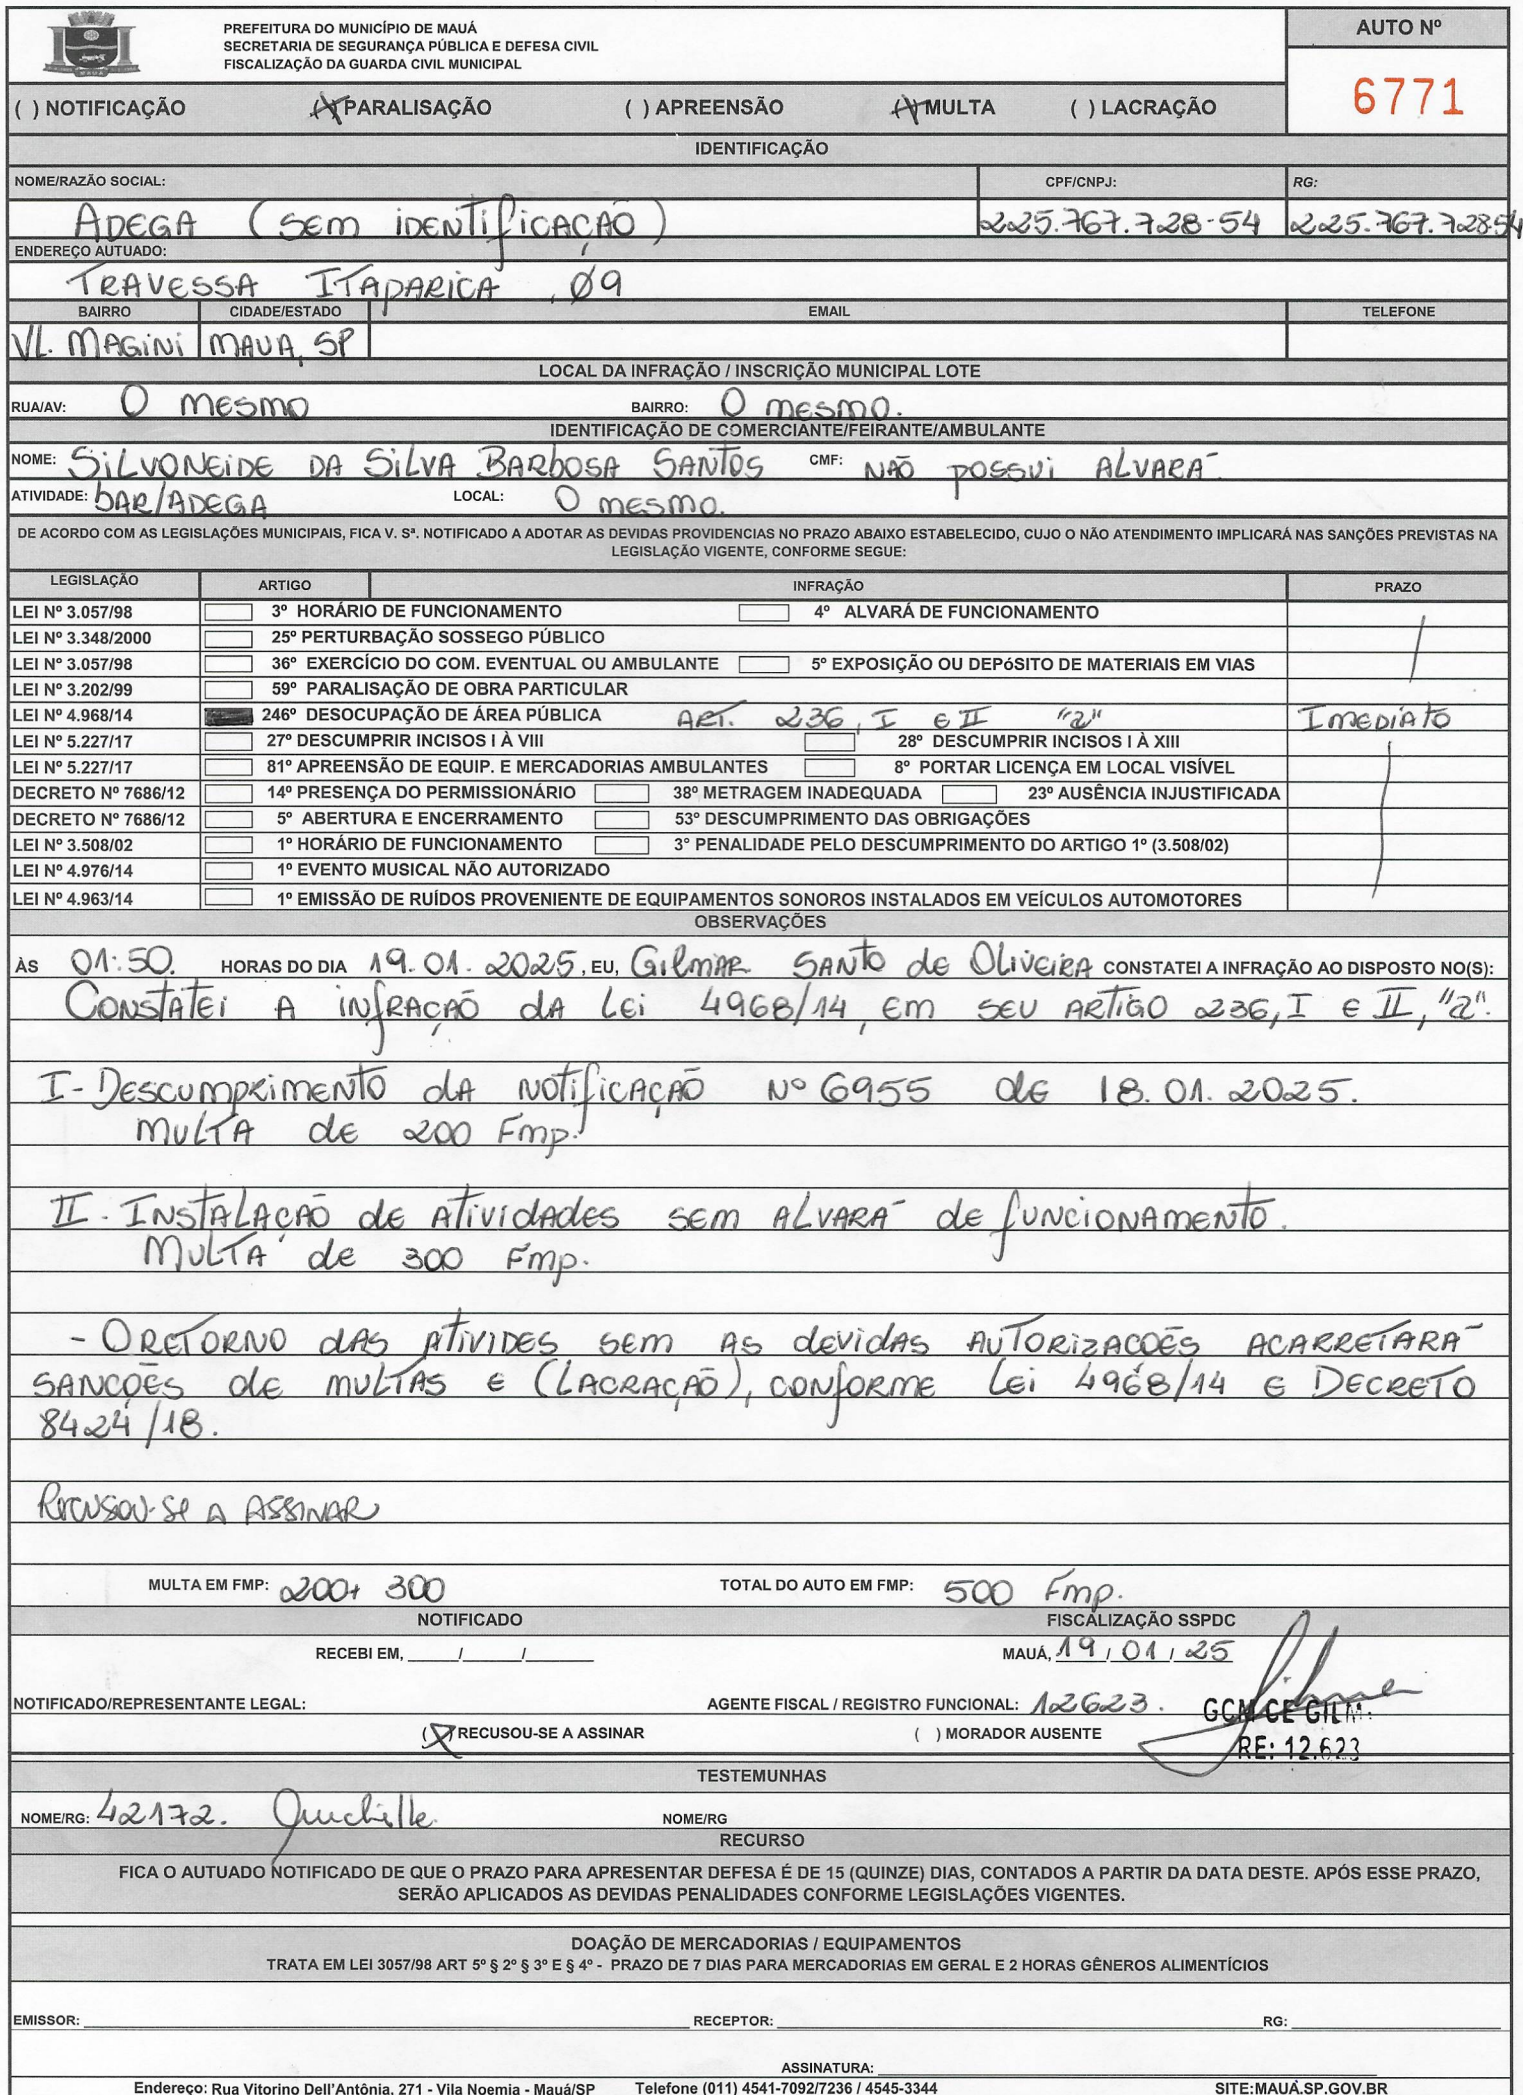 PREFEITURA DO MUNICÍPIO DE MAUÁ
SECRETARIA DE SEGURANÇA PÚBLICA E DEFESA CIVIL
FISCALIZAÇÃO DA GUARDA CIVIL MUNICIPAL
AUTO Nº
6771
( ) NOTIFICAÇÃO (X) PARALISAÇÃO ( ) APREENSÃO (X) MULTA ( ) LACRAÇÃO
IDENTIFICAÇÃO
NOME/RAZÃO SOCIAL: CPF/CNPJ: RG:
ADEGA (SEM IDENTIFICAÇÃO) 225.767.728-54 225.767.728-54
ENDEREÇO AUTUADO:
TRAVESSA ITAPARICA, 09
BAIRRO CIDADE/ESTADO EMAIL TELEFONE
VL. MAGINI MAUA, SP
LOCAL DA INFRAÇÃO / INSCRIÇÃO MUNICIPAL LOTE
RUA/AV: O MESMO BAIRRO: O MESMO.
IDENTIFICAÇÃO DE COMERCIANTE/FEIRANTE/AMBULANTE
NOME: SILVONEIDE DA SILVA BARBOSA SANTOS CMF: NÃO POSSUI ALVARÁ
ATIVIDADE: BAR/ADEGA LOCAL: O MESMO.
DE ACORDO COM AS LEGISLAÇÕES MUNICIPAIS, FICA V. Sª. NOTIFICADO A ADOTAR AS DEVIDAS PROVIDENCIAS NO PRAZO ABAIXO ESTABELECIDO, CUJO O NÃO ATENDIMENTO IMPLICARÁ NAS SANÇÕES PREVISTAS NA
LEGISLAÇÃO VIGENTE, CONFORME SEGUE:
LEGISLAÇÃO ARTIGO INFRAÇÃO PRAZO
LEI Nº 3.057/98 3º HORÁRIO DE FUNCIONAMENTO 4º ALVARÁ DE FUNCIONAMENTO
LEI Nº 3.348/2000 25º PERTURBAÇÃO SOSSEGO PÚBLICO
LEI Nº 3.057/98 36º EXERCÍCIO DO COM. EVENTUAL OU AMBULANTE 5º EXPOSIÇÃO OU DEPóSITO DE MATERIAIS EM VIAS
LEI Nº 3.202/99 59º PARALISAÇÃO DE OBRA PARTICULAR
LEI Nº 4.968/14 246º DESOCUPAÇÃO DE ÁREA PÚBLICA ART. 236, I E II "a" IMEDIATO
LEI Nº 5.227/17 27º DESCUMPRIR INCISOS I À VIII 28º DESCUMPRIR INCISOS I À XIII
LEI Nº 5.227/17 81º APREENSÃO DE EQUIP. E MERCADORIAS AMBULANTES 8º PORTAR LICENÇA EM LOCAL VISÍVEL
DECRETO Nº 7686/12 14º PRESENÇA DO PERMISSIONÁRIO 38º METRAGEM INADEQUADA 23º AUSÊNCIA INJUSTIFICADA
DECRETO Nº 7686/12 5º ABERTURA E ENCERRAMENTO 53º DESCUMPRIMENTO DAS OBRIGAÇÕES
LEI Nº 3.508/02 1º HORÁRIO DE FUNCIONAMENTO 3º PENALIDADE PELO DESCUMPRIMENTO DO ARTIGO 1º (3.508/02)
LEI Nº 4.976/14 1º EVENTO MUSICAL NÃO AUTORIZADO
LEI Nº 4.963/14 1º EMISSÃO DE RUÍDOS PROVENIENTE DE EQUIPAMENTOS SONOROS INSTALADOS EM VEÍCULOS AUTOMOTORES
OBSERVAÇÕES
ÀS 01:50. HORAS DO DIA 19.01.2025, EU, GILMAR SANTO DE OLIVEIRA CONSTATEI A INFRAÇÃO AO DISPOSTO NO(S):
CONSTATEI A INFRAÇÃO DA LEI 4968/14, EM SEU ARTIGO 236, I E II, "a".
I - DESCUMPRIMENTO DA NOTIFICAÇÃO Nº 6955 DE 18.01.2025.
MULTA DE 200 FMP.
II - INSTALAÇÃO DE ATIVIDADES SEM ALVARÁ DE FUNCIONAMENTO.
MULTA DE 300 FMP.
- O RETORNO DAS ATIVIDES SEM AS DEVIDAS AUTORIZACOES ACARRETARÁ
SANÇÕES DE MULTAS E (LACRAÇÃO), CONFORME LEI 4968/14 E DECRETO
8424/18.
RECUSOU-SE A ASSINAR
MULTA EM FMP: 200+ 300 TOTAL DO AUTO EM FMP: 500 FMP.
NOTIFICADO FISCALIZAÇÃO SSPDC
RECEBI EM, ____/____/____ MAUÁ, 19 / 01 / 25
NOTIFICADO/REPRESENTANTE LEGAL: AGENTE FISCAL / REGISTRO FUNCIONAL: 12623. GCM CE GILM
(X) RECUSOU-SE A ASSINAR ( ) MORADOR AUSENTE RE: 12.623
TESTEMUNHAS
NOME/RG: 42172. NOME/RG
RECURSO
FICA O AUTUADO NOTIFICADO DE QUE O PRAZO PARA APRESENTAR DEFESA É DE 15 (QUINZE) DIAS, CONTADOS A PARTIR DA DATA DESTE. APÓS ESSE PRAZO,
SERÃO APLICADOS AS DEVIDAS PENALIDADES CONFORME LEGISLAÇÕES VIGENTES.
DOAÇÃO DE MERCADORIAS / EQUIPAMENTOS
TRATA EM LEI 3057/98 ART 5º § 2º § 3º E § 4º - PRAZO DE 7 DIAS PARA MERCADORIAS EM GERAL E 2 HORAS GÊNEROS ALIMENTÍCIOS
EMISSOR: RECEPTOR: RG:
ASSINATURA:
Endereço: Rua Vitorino Dell'Antônia, 271 - Vila Noemia - Mauá/SP Telefone (011) 4541-7092/7236 / 4545-3344 SITE:MAUÁ.SP.GOV.BR